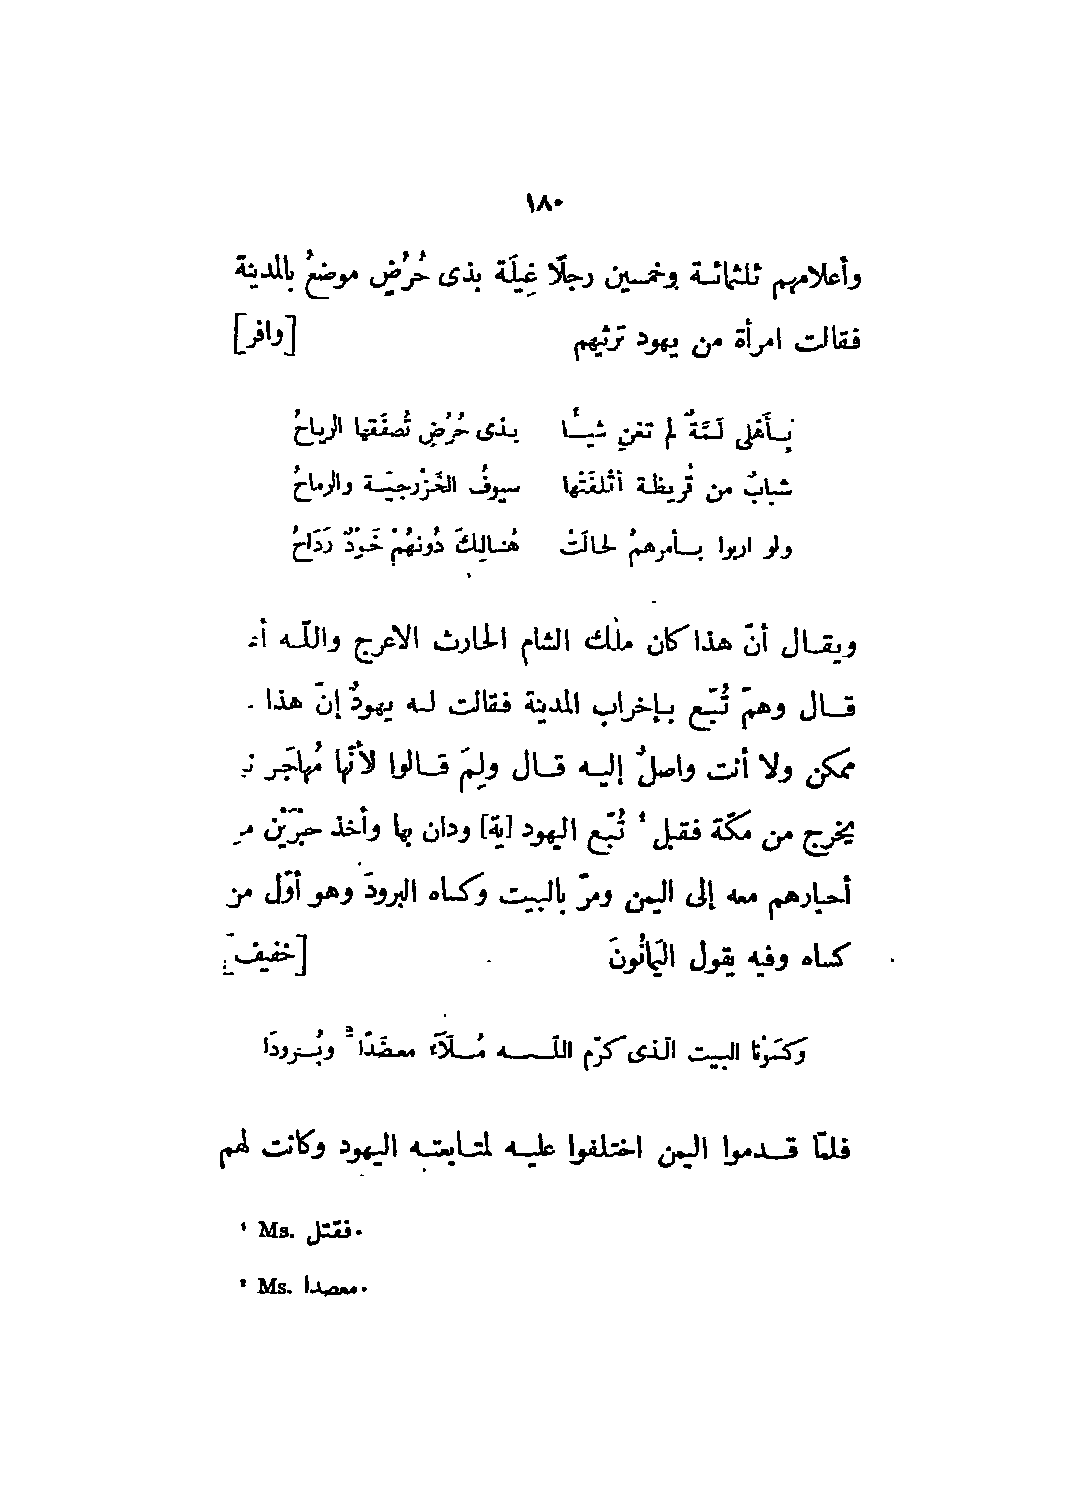 ١٨٠
وأعلامهم ثلثمائة وخمسين رجلًا غِيلَة بذى حُرُضٍ موضعُ بالمدينة
فقالت امرأة من يهود ترثيهم [وافر]
بِأَهْلى لَمَّةٌ لم تغنِ شيـًٔا بذى حُرُضِ تُصفَقها الرياحُ
شبابٌ من قُريظة أتْلفَتْها سيوفُ الخَزْرجيّة والرماحُ
ولو اربوا بأمرهمُ لحالَتْ هُنالِكَ دُونهُمْ خَوْدٌ رَدَاحُ
ويقال أنّ هذا كان ملك الشام الحارث الاعرج واللّه
قال وهمّ تُبّع بإخراب المدينة فقالت له يهودُ إنّ هذا
ممكن ولا أنت واصلٌ إليه قال ولِمَ قالوا لأنّها مُهاجَر
يخرج من مكّة فقبل ¹ تُبّع اليهود [ية] ودان بها وأخذ حبْرَيْن
أحبارهم معه إلى اليمن ومرّ بالبيت وكساه البرودَ وهو أوّل من
كساه وفيه يقول اليَمانُونَ [خفيف]
وَكَسَوْنا البيت الّذى كرّم اللّه مُلَآءً معضَّدًا ² وبُرودَا
فلمّا قدموا اليمن اختلفوا عليه لمتابعته اليهود وكانت لهم
¹ Ms. فقتل.
² Ms. معصدا.